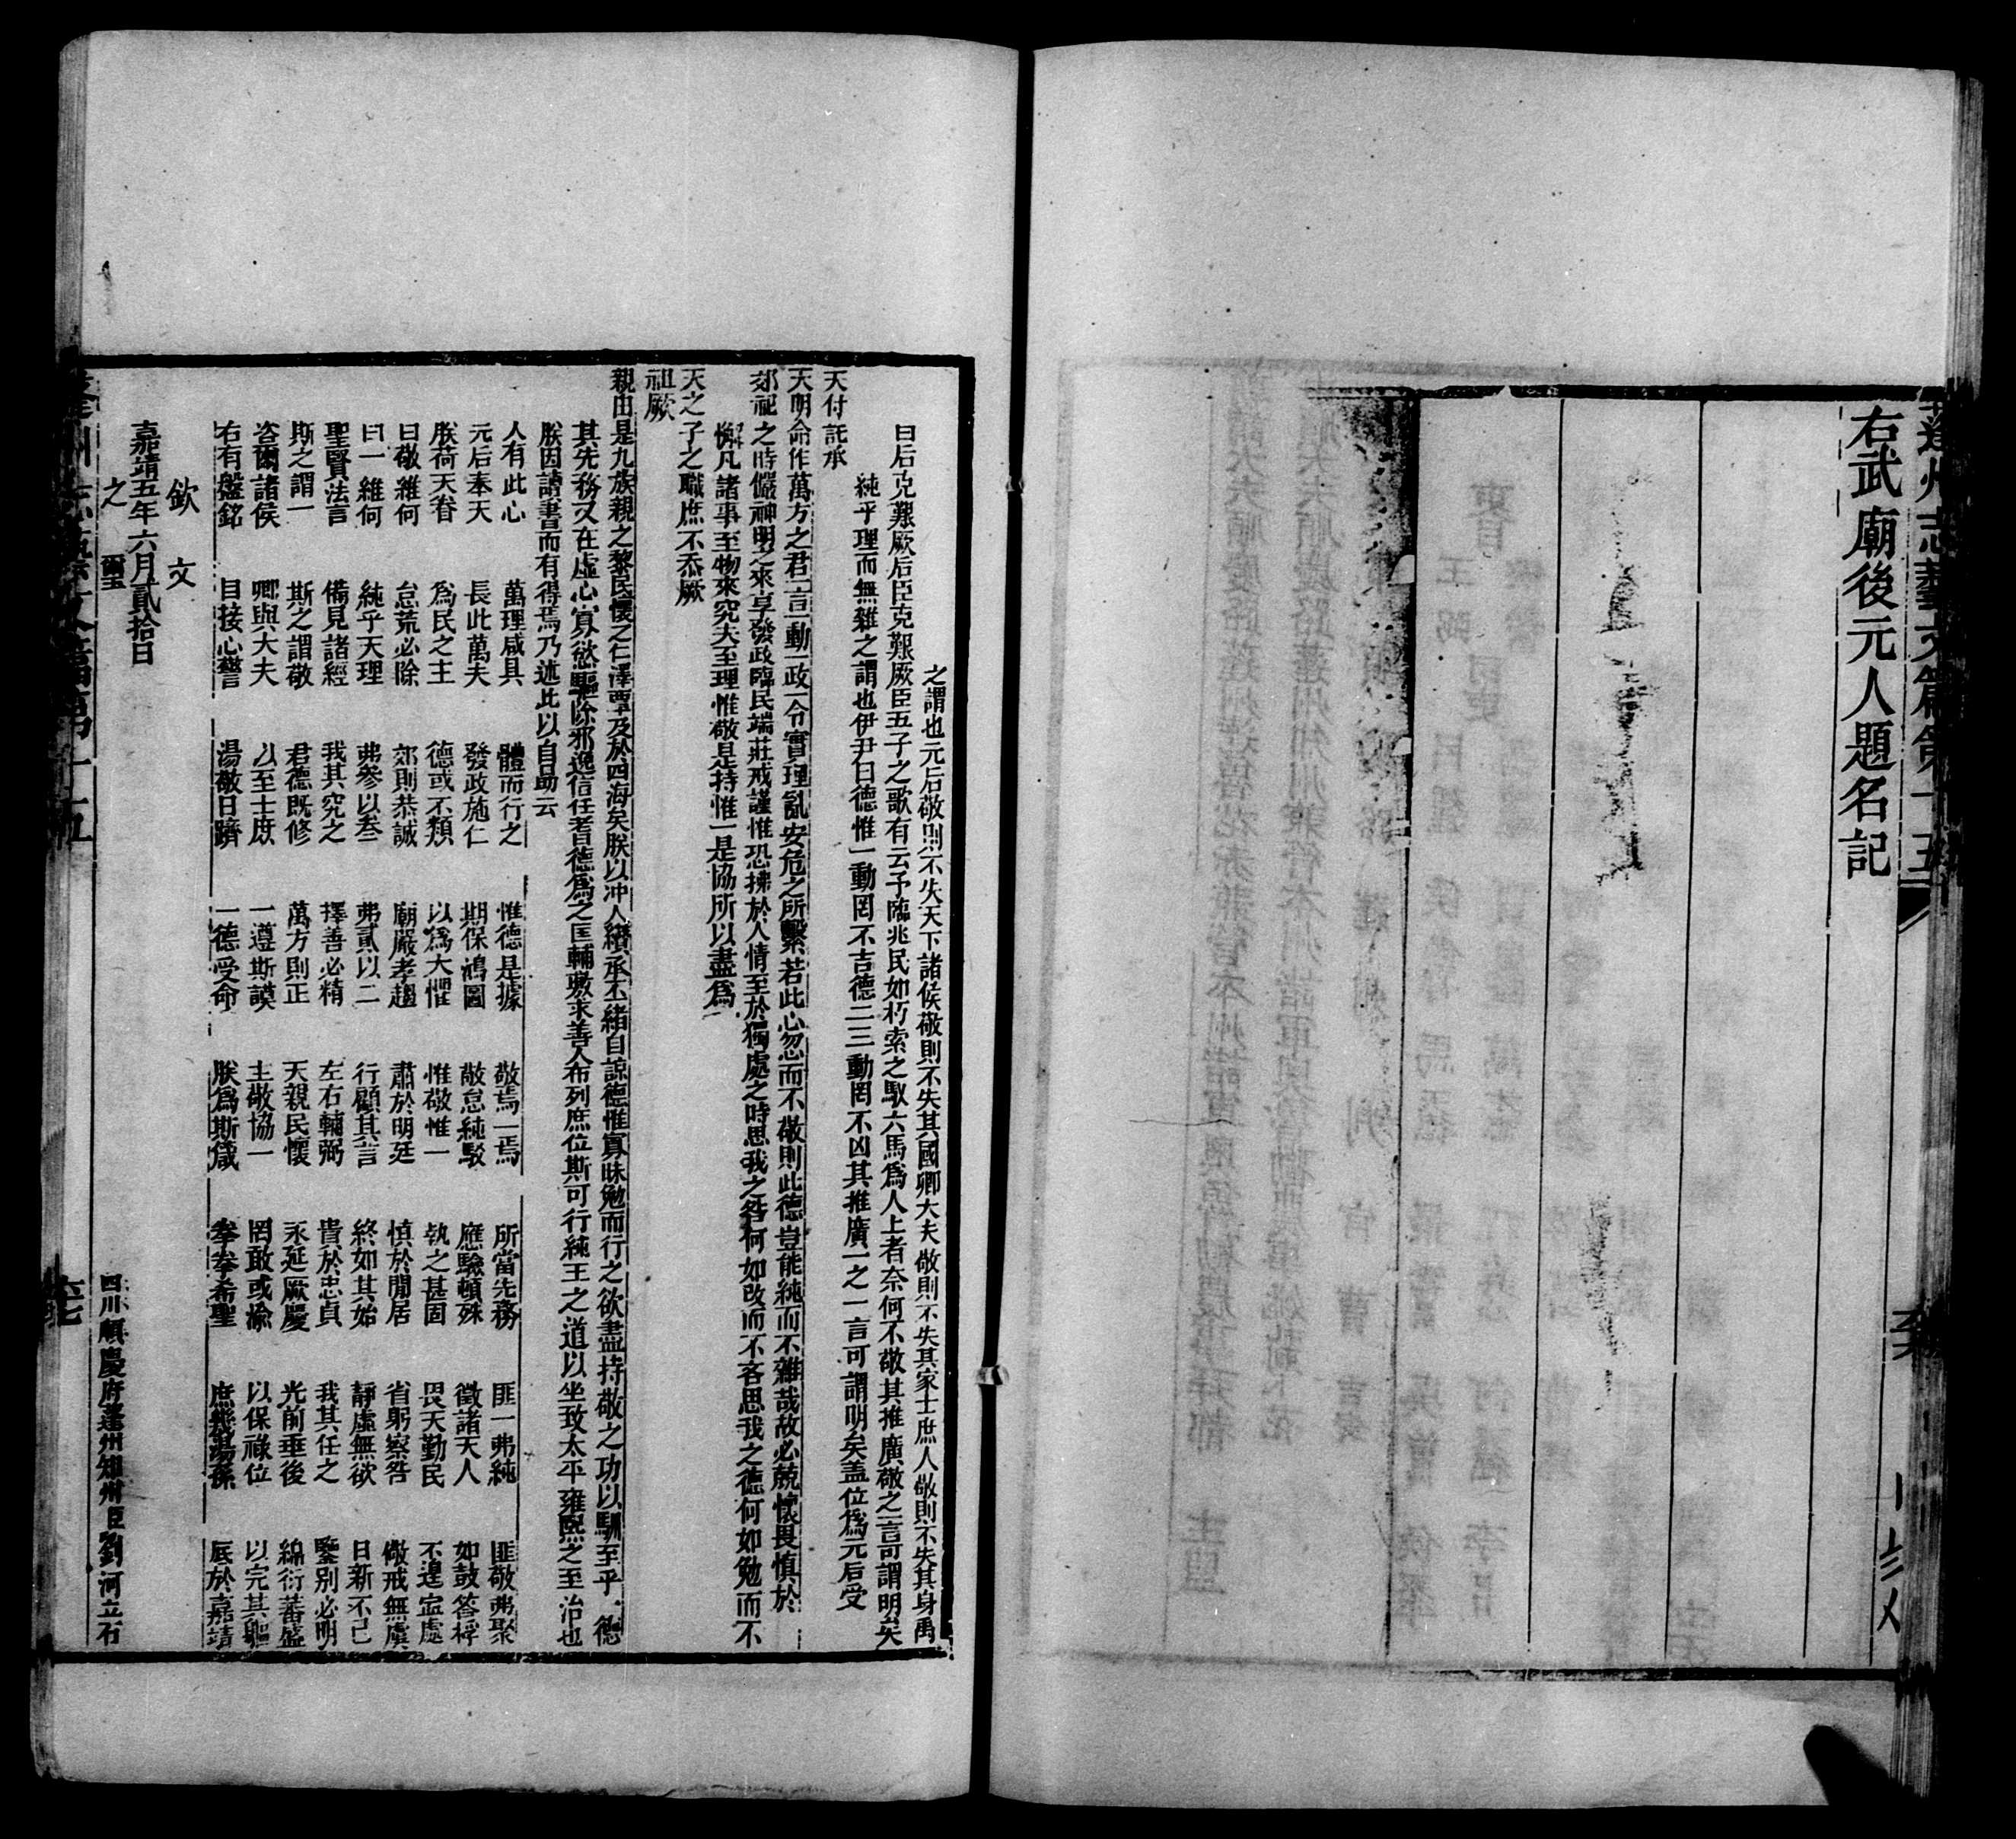 蓬州志藝文篇第十五
右武廟後元人題名記
之謂也元后敬則不失天下諸侯敬則不失其國卿大夫敬則不失其家士庶人敬則不失其身禹
曰后克艱厥后臣克艱厥臣五子之歌有云予臨兆民如朽索之馭六馬爲人上者奈何不敬其推廣敬之一言可謂明矣
純乎理而無雜之謂也伊尹曰德惟一動罔不吉德二三動罔不凶其推廣一之一言可謂明矣盖位爲元后受
天付託承
天明命作萬方之君一言一動一政一令實理亂安危之所繫若此心忽而不敬則此德豈能純而不雜哉故必兢懷畏慎於
郊祀之時儼神明之來享發政臨民端莊戒謹惟恐拂於人情至於獨處之時思我之咎何如改而不吝思我之德何如勉而不
懈凡諸事至物來究夫至理惟敬是持惟一是協所以盡爲
天之子之職庶不忝厥
祖厥
親由是九族親之黎民懷之仁澤覃及於四海矣朕以冲人纘承丕緒自諒德惟寡昧勉而行之欲盡持敬之功以馴至乎一德
其先務又在虛心寡慾驅除邪逸信任耆德爲之匡輔敷求善人布列庶位斯可行純王之道以坐致太平雍熙之至治也
朕因讀書而有得焉乃述此以自勗云
人有此心 萬理咸具 體而行之 惟德是據 敬焉一焉 所當先務 匪一弗純 匪敬弗聚
元后奉天 長此萬夫 發政施仁 期保鴻圖 敬怠純駁 應驗頓殊 徵諸天人 如鼓答桴
朕荷天眷 爲民之主 德或不類 以爲大懼 惟敬惟一 執之甚固 畏天勤民 不遑寍處
曰敬維何 怠荒必除 郊則恭誠 廟嚴孝趨 肅於明廷 慎於閒居 省躬察咎 儆戒無虞
曰一維何 純乎天理 弗參以叁 弗貳以二 行顧其言 終如其始 靜虛無欲 日新不已
聖賢法言 備見諸經 我其究之 擇善必精 左右輔弼 貴於忠貞 我其任之 鑒別必明
斯之謂一 斯之謂敬 君德旣修 萬方則正 天親民懷 永延厥慶 光前垂後 綿衍蕃盛
咨爾諸侯 卿與大夫 以至士庶 一遵斯謨 主敬協一 罔敢或渝 以保祿位 以完其軀
右有盤銘 目接心警 湯敬日躋 一德受命 朕爲斯箴 拳拳希聖 庶幾湯孫 底於嘉靖
欽文
嘉靖五年六月貳拾日
之璽
四川順慶府蓬州知州臣劉河立石